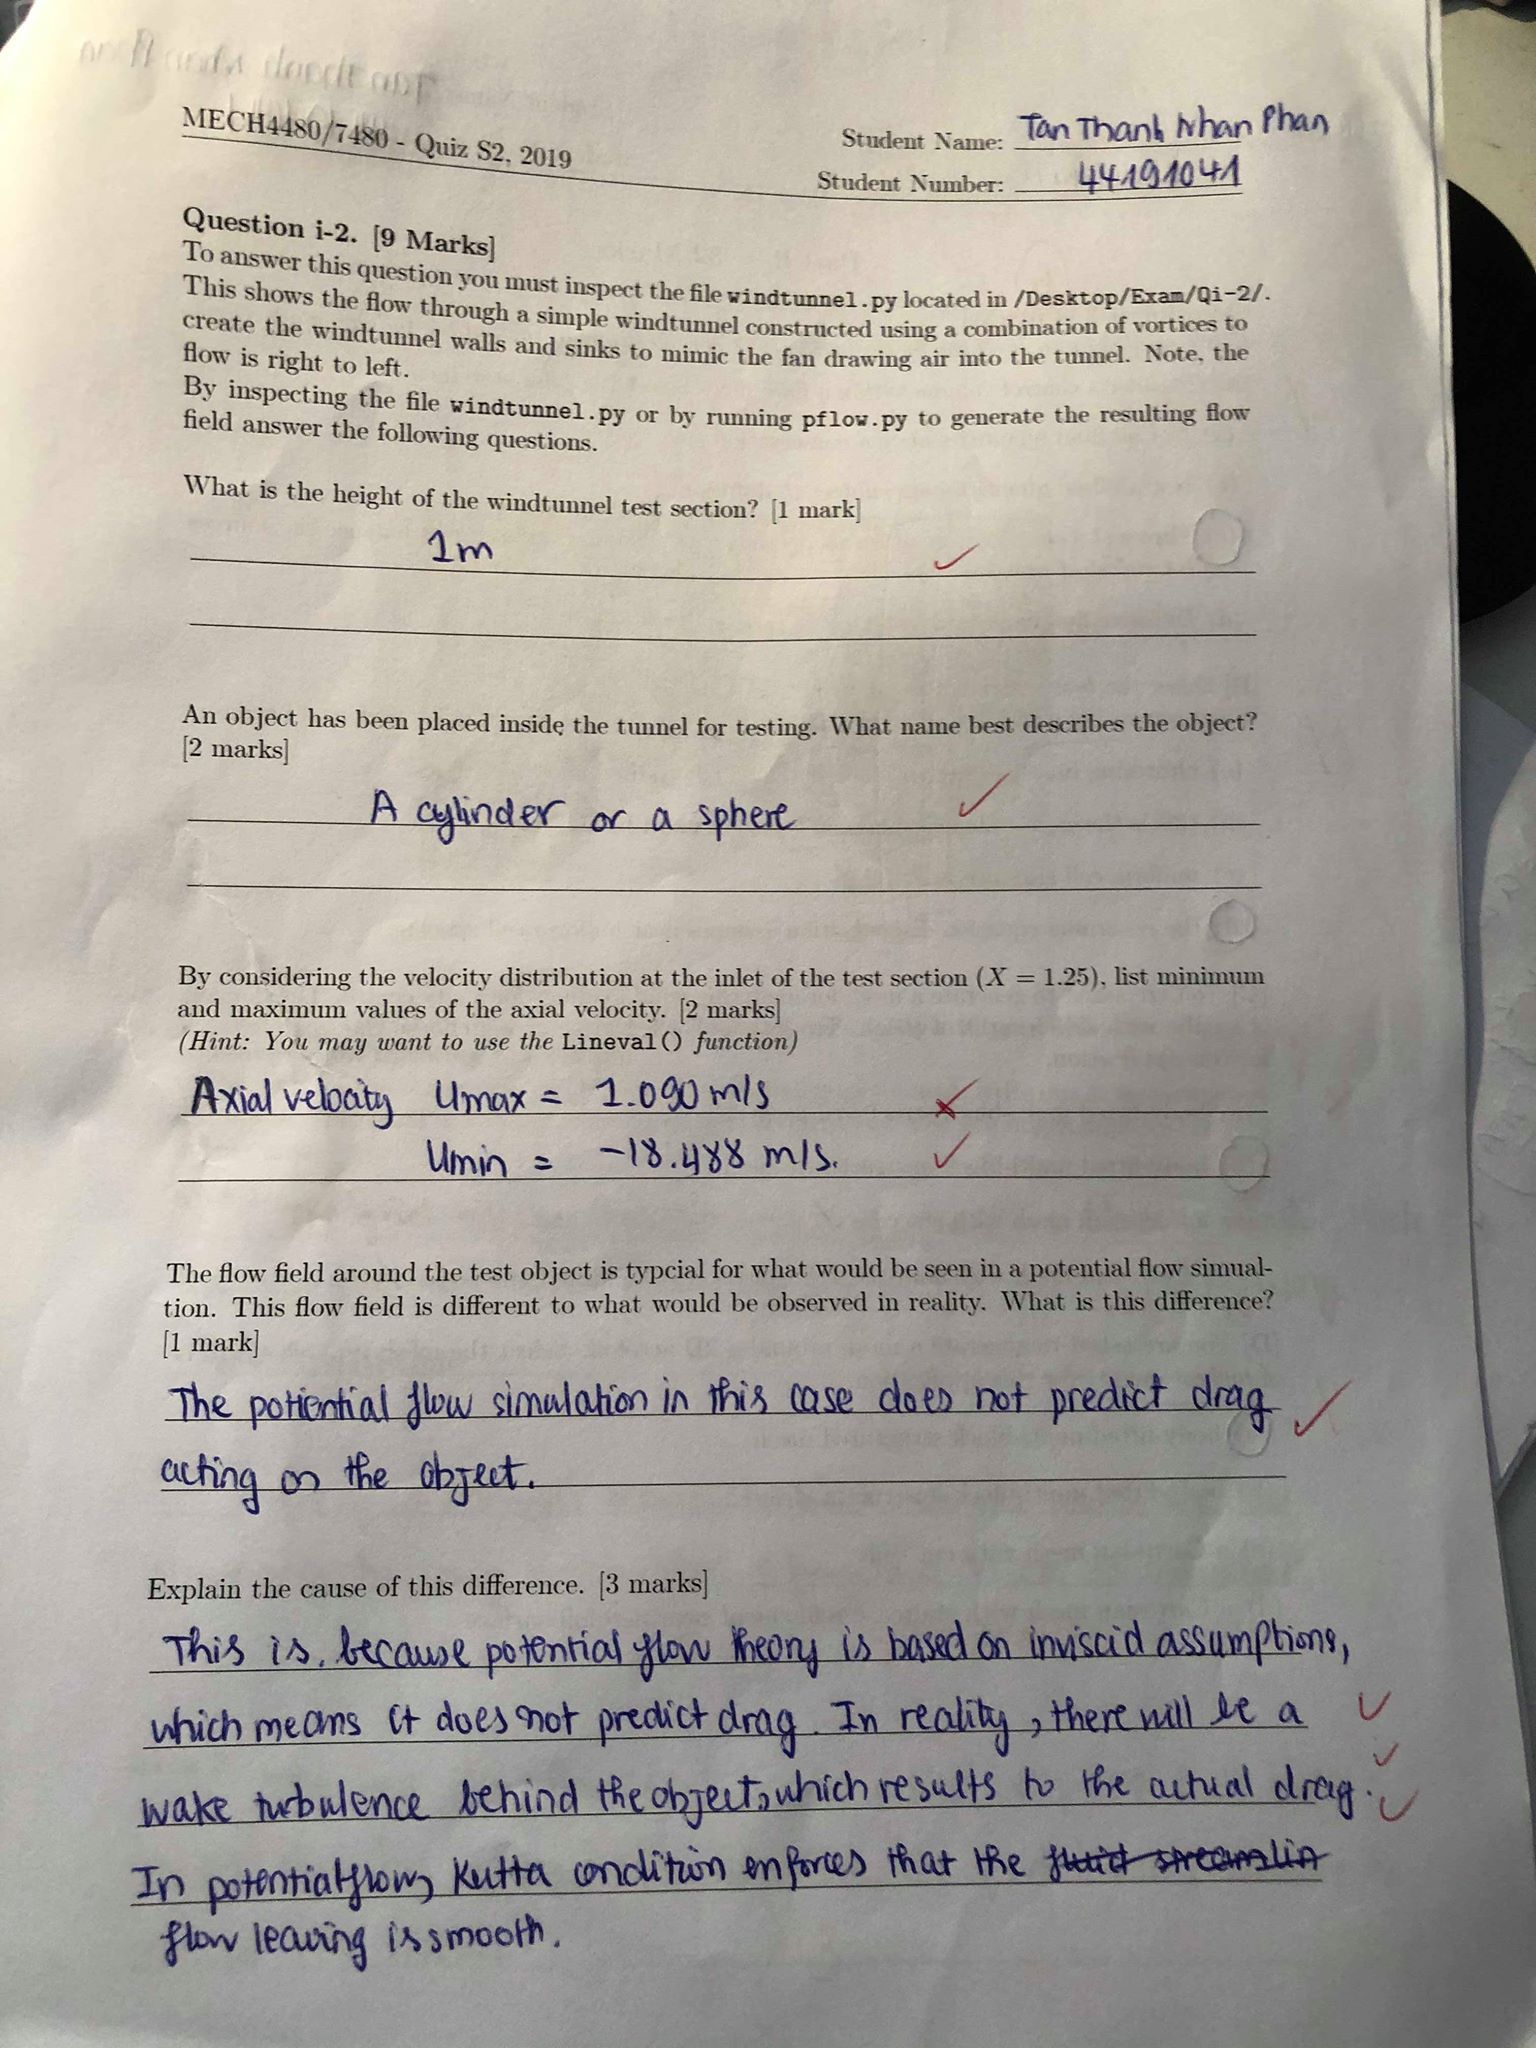 MECH4480/7480 - Quiz S2, 2019
Student Name: Tan Thanh Nhan Phan
Student Number: 44191041
Question i-2. [9 Marks]
To answer this question you must inspect the file windtunnel.py located in /Desktop/Exam/Qi-2/.
This shows the flow through a simple windtunnel constructed using a combination of vortices to
create the windtunnel walls and sinks to mimic the fan drawing air into the tunnel. Note, the
flow is right to left.
By inspecting the file windtunnel.py or by running pflow.py to generate the resulting flow
field answer the following questions.
What is the height of the windtunnel test section? [1 mark]
1m
An object has been placed inside the tunnel for testing. What name best describes the object?
[2 marks]
A cylinder or a sphere
By considering the velocity distribution at the inlet of the test section (X = 1.25), list minimum
and maximum values of the axial velocity. [2 marks]
(Hint: You may want to use the Lineval() function)
Axial velocity Umax = 1.090 m/s
Umin = -18.488 m/s.
The flow field around the test object is typcial for what would be seen in a potential flow simual-
tion. This flow field is different to what would be observed in reality. What is this difference?
[1 mark]
The potiential flow simulation in this case does not predict drag
acting on the object.
Explain the cause of this difference. [3 marks]
This is. because potential flow theory is based on inviscid assumptions,
which means it does not predict drag. In reality, there will be a
wake turbulence behind the object, which results to the actual drag.
In potential flow, Kutta condition enforces that the fluid streamlin
flow leaving is smooth.